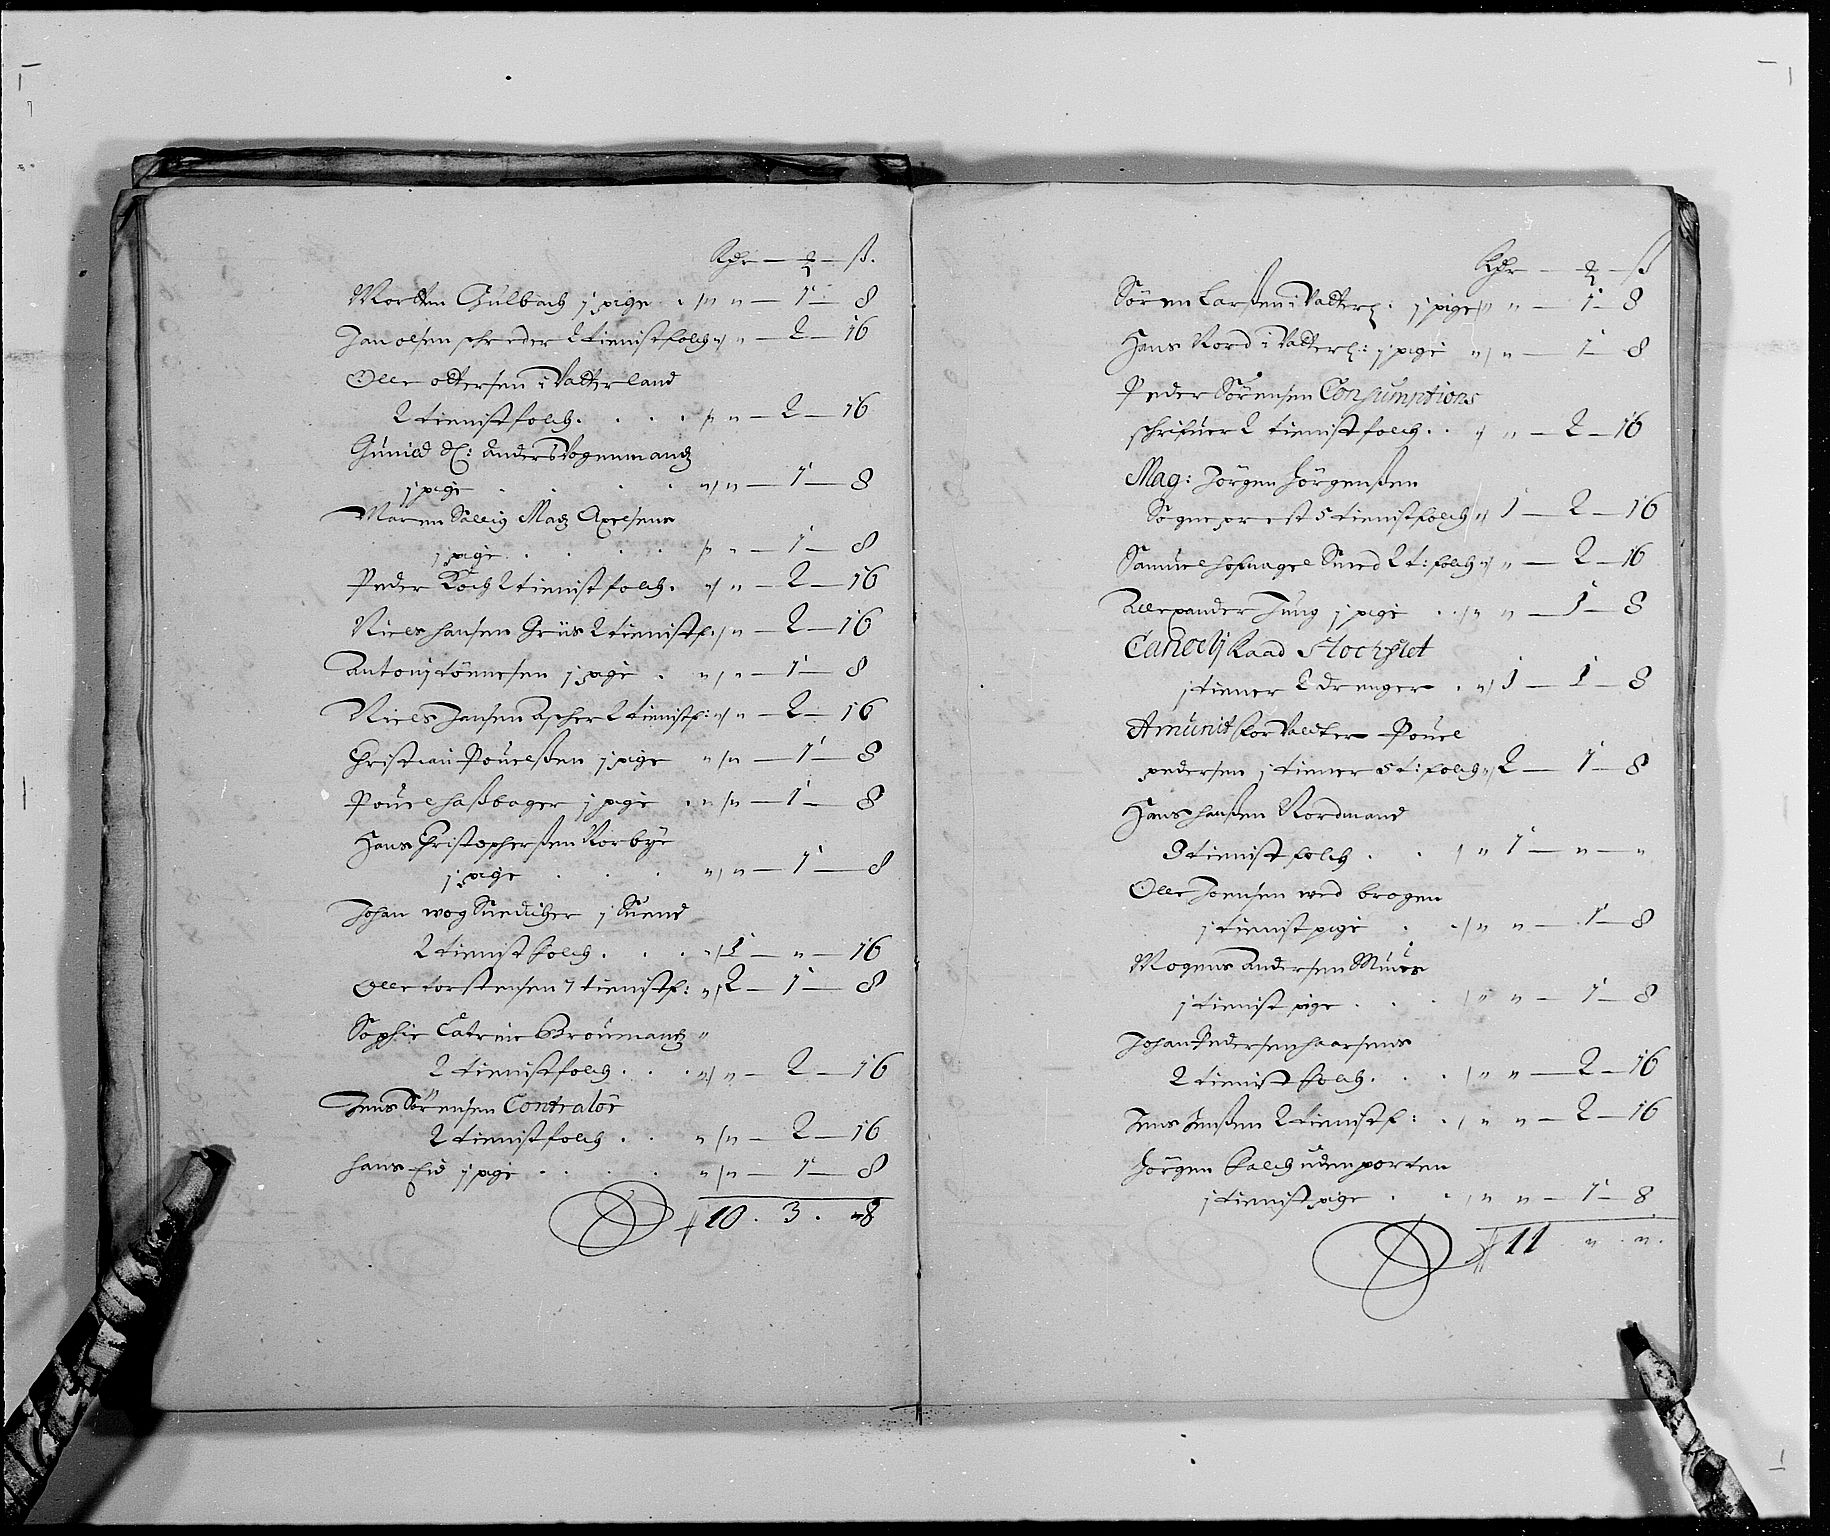 Rdr — ₰ — ß.
Morten Gulbach j pige . / „ „ — 1 — 8
Jan olsen schreder 2 tienistfolch „/ „ — 2 — 16
Olle ottersen i Vatterland
2 tienistfolch . . . . /„ „ — 2 — 16
Gunild Sl: Anders Vognmands
j pige . . . . „/ „ — 1 — 8
Maren Sallig Mads Axelsens
j pige . . . . /„ „ — 1 — 8
Peder Koch 2 tienist folch . „/ „ — 2 — 16
Niels hansen Griis 2 tienistf: / „ — 2 — 16
Antonj tönnesen j pige . „/ „ — 1 — 8
Niels Jansen Ascher 2 tienistf: „/ „ — 2 — 16
Christian Pouelßen j pige „ /„ — 1 — 8
Pouel haßbager j pige . „ /„ — 1 — 8
Hans Christopherßen Norbye
j pige . . . „/ „ — 1 — 8
Johan wog j Suend
2 tienist folch . . . „/ 1 — „ — 16
Olle torstensen 7 tienistf: „/ 2 — 1 — 8
Sophie Catrine Broumands „
2 tienistfolch . . . „/ „ — 2 — 16
Jens Sörensen Contralör
2 tienistfolch . . „ /„ — 2 — 16
hans Eid j pige . . . . „ /„ — 1 — 8
10 . 3 . 8
Rdr — ₰ — ß
Sören Larßen i Vatterl: j pige / „ „ — 1 — 8
Hans Nord i Vatterl: j pige „/ „ — 1 — 8
Peder Sörensen Consumptions
schrifuer 2 tienistfolch . . „/ „ — 2 — 16
Mag: Jörgen Jörgenßen
Sogneprest 5 tienistfolch „/ 1 — 2 — 16
Samuel hofnagel Smed 2 t: folch „/ „ — 2 — 16
Allexander Jung j pige . . / „ „ — 1 — 8
Cancelij Raad Stochflet
j tiener 2 drenger . „/ 1 — 1 — 8
Amunt forvalter Pouel
pedersen j tiener 5 t: folch „/ 2 — 1 — 8
Hans hanßen Nordmand
3 tienist folch . . / „ 1 — „ — „
Olle Joensen wed brogen
j tienist pige . . / „ „ — 1 — 8
Mogens Andersen
j tienist pige . . . / „ „ — 1 — 8
Johan Pedersen
2 tienist folch . . . / „ „ — 2 — 16
Jens Jenßen 2 tienistf: . / „ „ — 2 — 16
Jörgen Falch uden porten
j tienist pige . . / „ „ — 1 — 8
11 „ . „ .